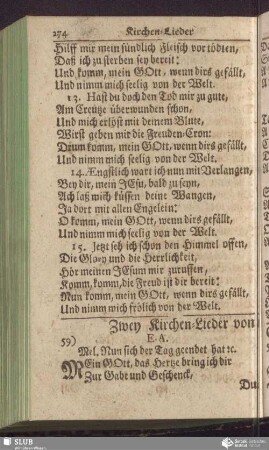 274 Kirchen-Lieder
Hilff mir mein sündlich Fleisch vor tödten,
Daß ich zu sterben sey bereit:
Und komm, mein GOtt, wenn dirs gefällt,
Und nimm mich seelig von der Welt.
13. Hast du doch den Tod mir zu gute,
Am Creutze überwunden schon,
Und mich erlöst mit deinem Blute,
Wirst geben mit die Freuden-Cron:
Drum komm, mein GOtt, wenn dirs gefällt,
Und nimm mich seelig von der Welt.
14. Ængstlich wart ich nun mit Verlangen,
Bey dir, mein JEsu, bald zu seyn,
Ach laß mich küssen deine Wangen,
Ja dort mit allen Engelein:
O komm, mein GOtt, wenn dirs gefällt,
Und nimm mich seelig von der Welt.
15. Jetzt seh ich schon den Himmel offen,
Die Glory und die Herrlichkeit,
Hör meinen JEsum mir zuruffen,
Komm, komm, die Freud ist dir bereit:
Nun komm, mein GOtt, wenn dirs gefällt,
Und nimm mich frölich von der Welt.
Zwey Kirchen-Lieder von
E. A.
59)
Mel. Nun sich der Tag geendet hat ꝛc.
MEin GOtt, das Hertze bring ich dir
Zur Gabe und Geschenck,
Du
SLUB